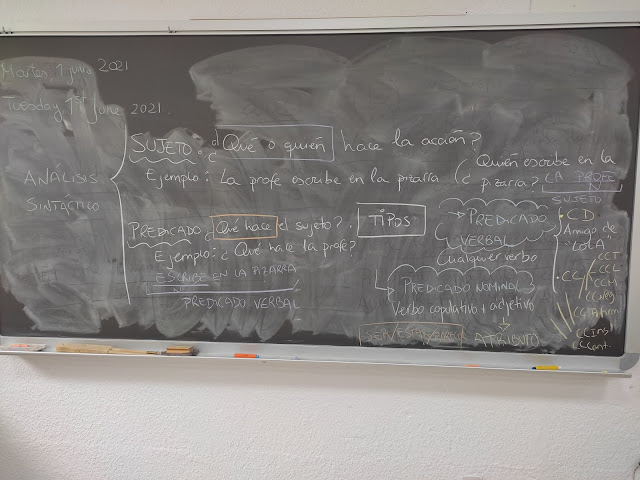 Martes, 1 junio 2021
Tuesday 1st June 2021.
ANÁLISIS
SINTÁCTICO
SUJETO: ¿Qué o quién hace la acción?
Ejemplo: La profe escribe en la pizarra (¿Quién escribe en la
pizarra? LA PROFE
SUJETO
PREDICADO ¿Qué hace el sujeto?.
Ejemplo: ¿Qué hace la profe?
ESCRIBE EN LA PIZARRA
N
PREDICADO VERBAL
TIPOS
PREDICADO
VERBAL
Cualquier verbo
PREDICADO NOMINAL
Verbo copulativo + adjetivo
SER/ESTAR/PARECER
ATRIBUTO
CD:
"Amigo de
"LOLA"
CC
CCT
CCL
CCM
CCNeg
CCAfirm
CCIns
CCCant.